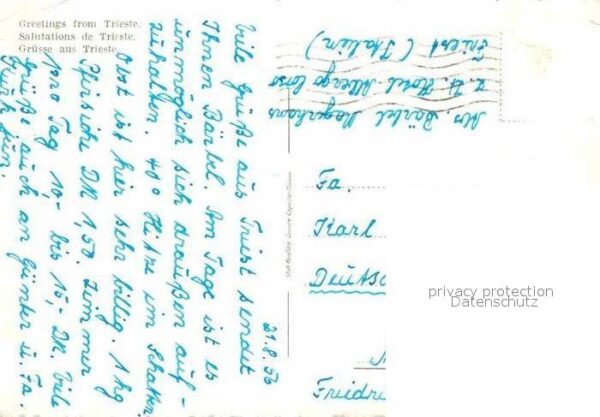 Greetings from Trieste.
Salutations de Trieste.
Grüsse aus Trieste.
21.8.56
Viele Grüße aus Triest sendet
Ihnen Bärbel. Am Tage ist es
unmöglich sich draußen auf-
zuhalten. 40° Hitze im Schatten.
Obst ist hier sehr billig. 1 kg
Pfirsiche DM 1,50. Zimmer
pro Tag 10,- bis 15,- DM. Viele
Grüße auch an Günter u. Fa.
Abs. Bärbel
z. Zt. Hotel Albergo Corso
Triest (Italien)
Fa.
Karl
Deutsc
Friedri
privacy protection
Datenschutz